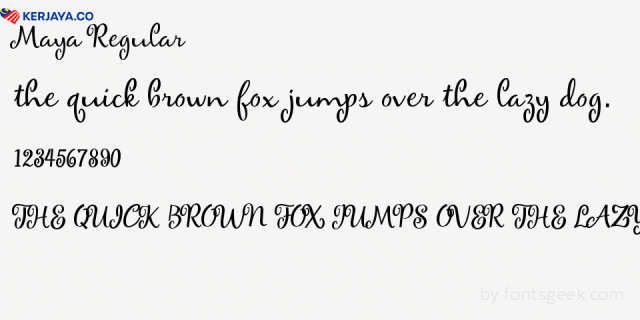 KERJAYA.CO
Maya Regular
the quick brown fox jumps over the lazy dog.
1234567890
THE QUICK BROWN FOX JUMPS OVER THE LAZY
by fontsgeek.com